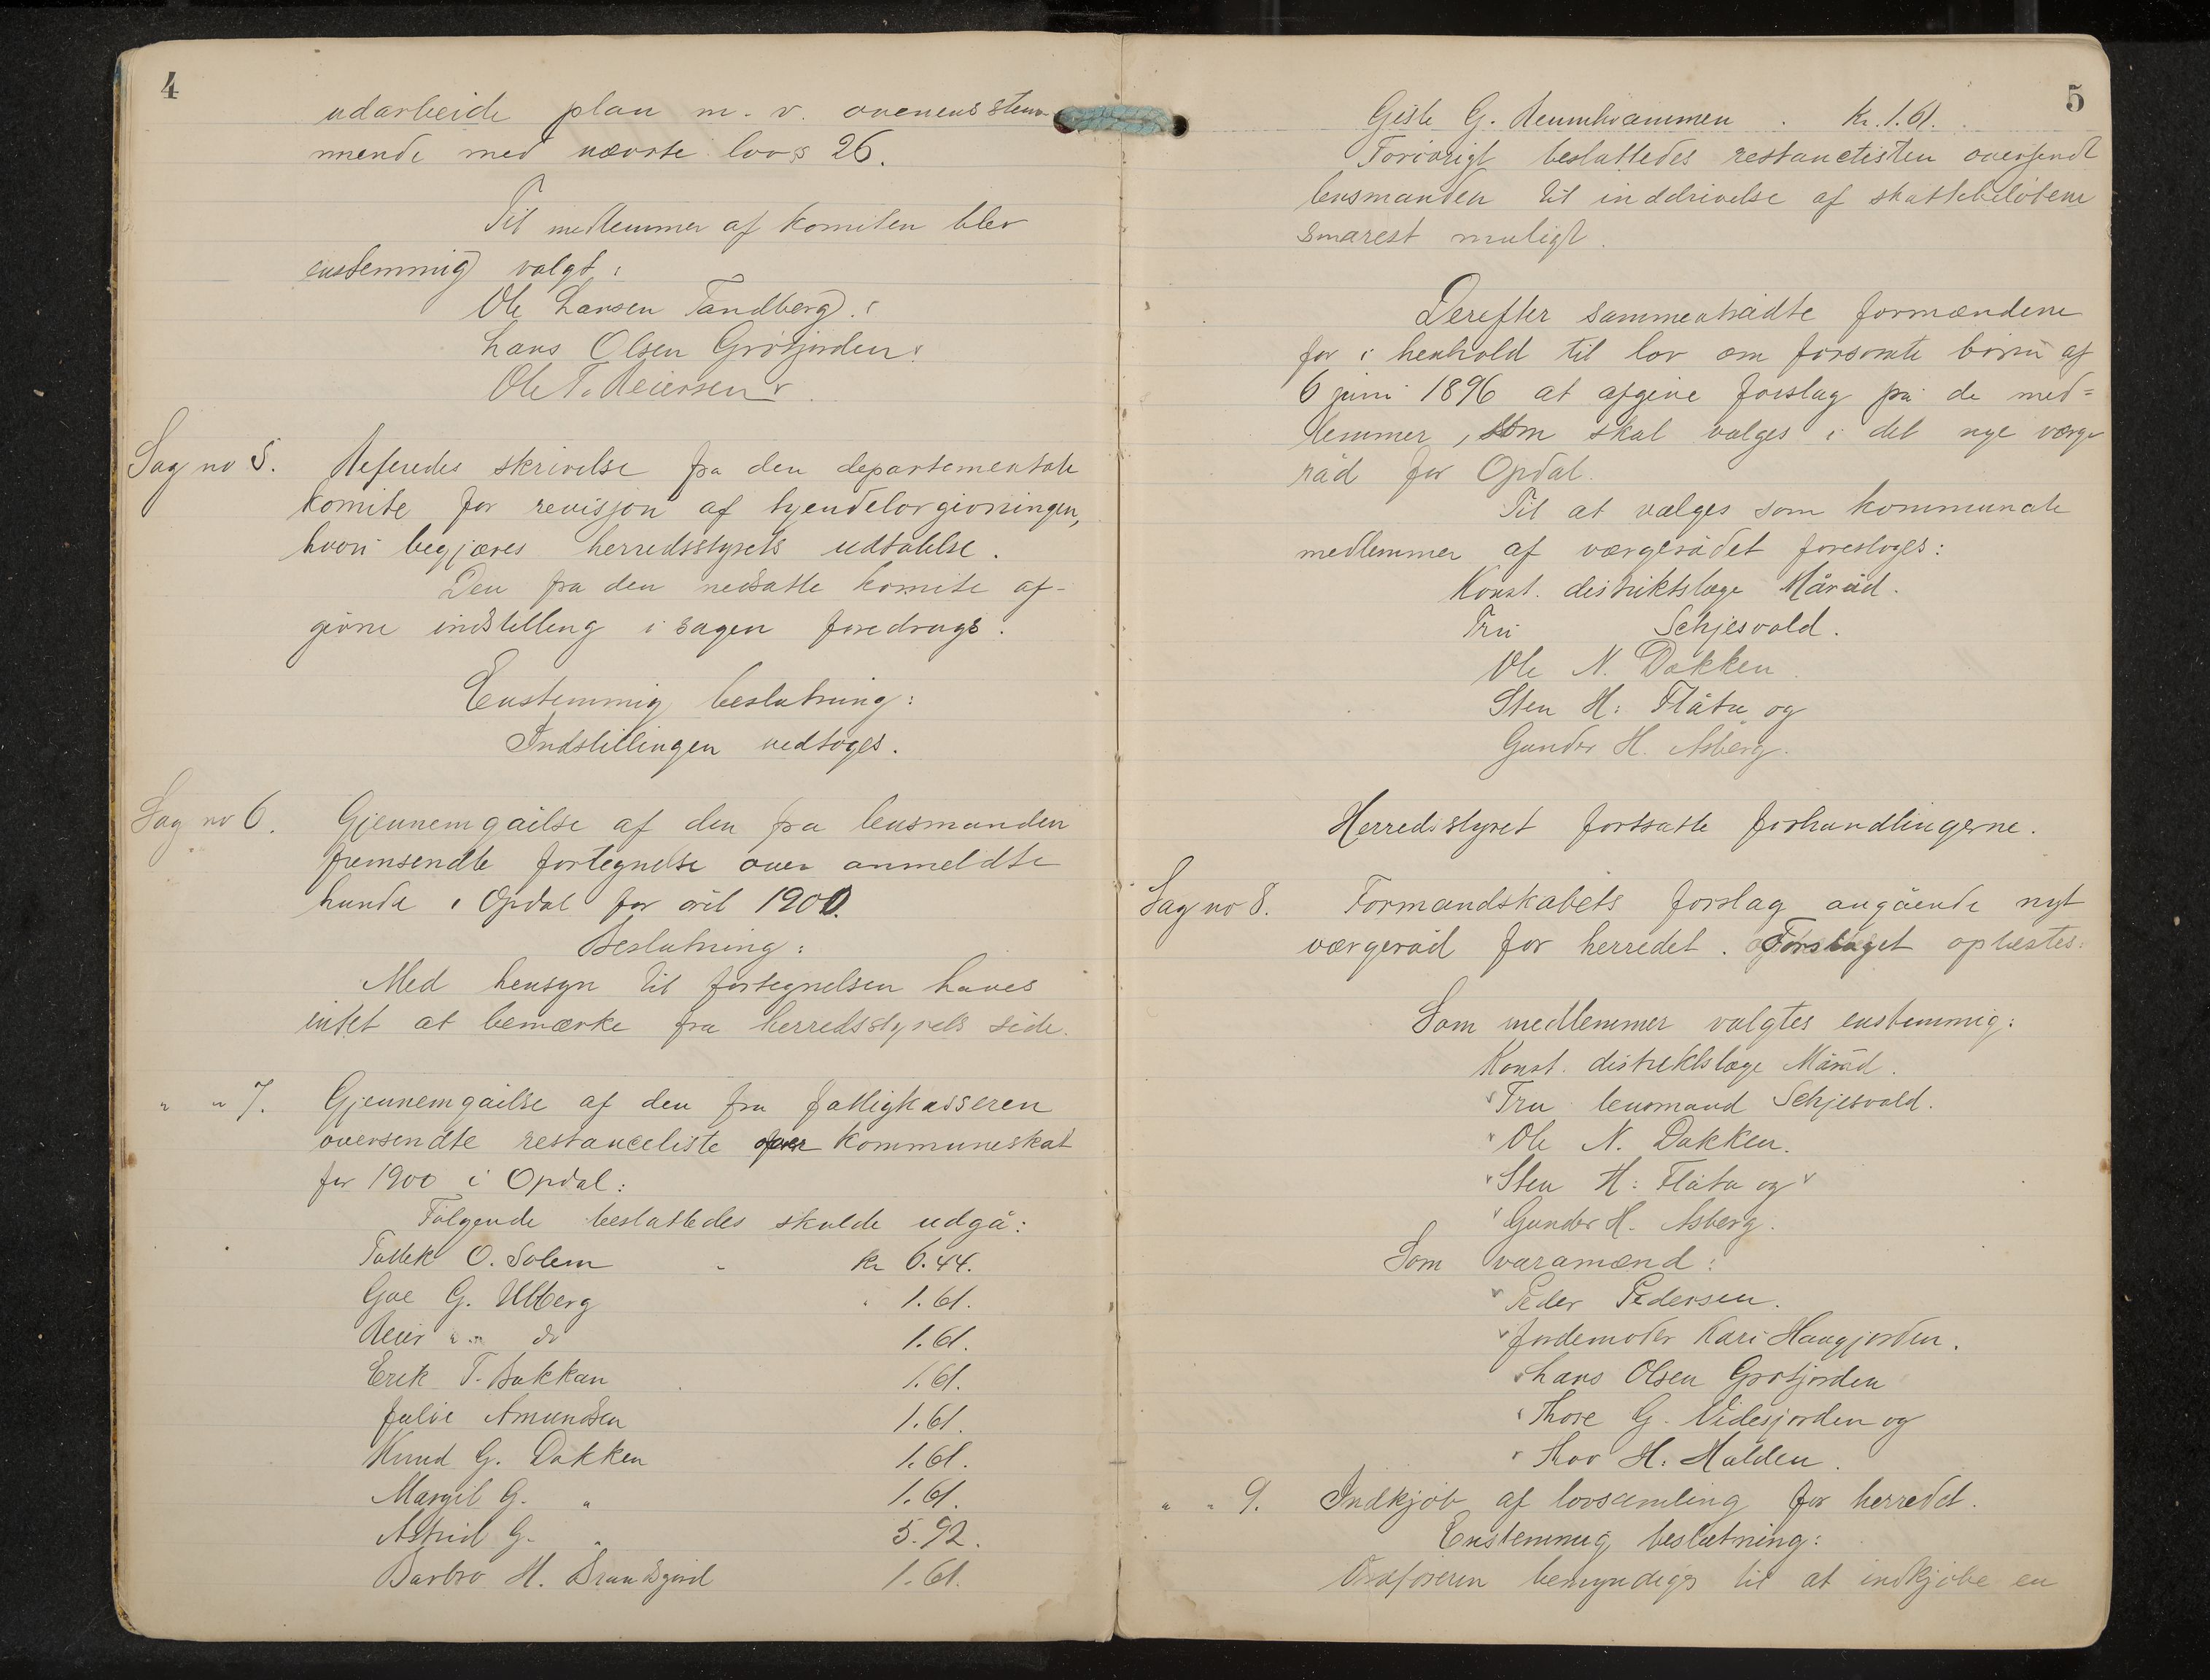 4
udarbeide plan m. v. overensstem-
mende med nævnte lovs § 26.
Til medlemmer af komiteen blev
enstemmig valgt:
Ole Larsen Tandberg.
Lars Olsen Grötjorden.
Ole T. Reiersen
Sag no 5. Referedes skrivelse fra den departementale
komite for revisjon af tyendelovgivningen,
hvori begjæres herredsstyrets udtalelse.
Den fra den nedsatte komite af-
givne indstilling i sagen foredrags.
Enstemmig beslutning:
Indstillingen vedtoges.
Sag no 6. Gjennemgåelse af den fra lensmanden
fremsendte fortegnelse over anmeldte
hunde i Opdal for året 1900.
Beslutning:
Med hensyn til fortegnelsen haves
intet at bemærke fra herredsstyrets side.
" " 7. Gjennemgåelse af den fra fattigkasseren
oversendte restanceliste over kommuneskat
for 1900 i Opdal:
Følgende besluttedes skulde udgå:
Tollek O. Solem kr 6.44.
Goe G. Ulberg 1.61.
Reier " " do 1.61.
Erik T. Bakkan 1.61.
Julie Amundsen 1.61.
Knud G. Dokken 1.61.
Margit G. " 1.61.
Astrid G. " 5.92.
Barbro H. Brundsgård 1.61.
5
Gisle G. Kr. 1.61.
Forövrigt besluttedes restancelisten oversendt
lensmanden til inddrivelse af skattebelöbene
snarest muligt.
Derefter sammentrådte formændene
for i henhold til lov om forsömte börn af
6 juni 1896 at afgive forslag på de med=
lemmer, som skal vælges i det nye værge
råd for Opdal.
Til at vælges som kommunale
medlemmer af værgerådet foresloges:
Konst. distriktslæge Måråd.
Fru Schjesvold.
Ole N. Dokken
Sten H. Flåta og
Gunder H. Åsberg.
Herredsstyret fortsatte forhandlingerne.
Sag no 8. Formandskabets forslag angående nyt
værgeråd for herredet. Forslaget oplæstes.
Som medlemmer valgtes enstemmig:
Konst. distriktslæge Måråd.
Fru lensmand Schjesvold.
Ole N. Dokken.
Sten H. Flåta og
Gunder H. Åsberg.
Som varamænd:
Peder Pedersen.
Jordemoder Kari Haugjorden.
Lars Olsen Grötjorden
Thore G. Videsjorden og
Thov H. Halden.
" " 9. Indkjöb af lovsamling for herredet.
Enstemmig beslutning:
Ordföreren bemyndiges til at indkjöbe en